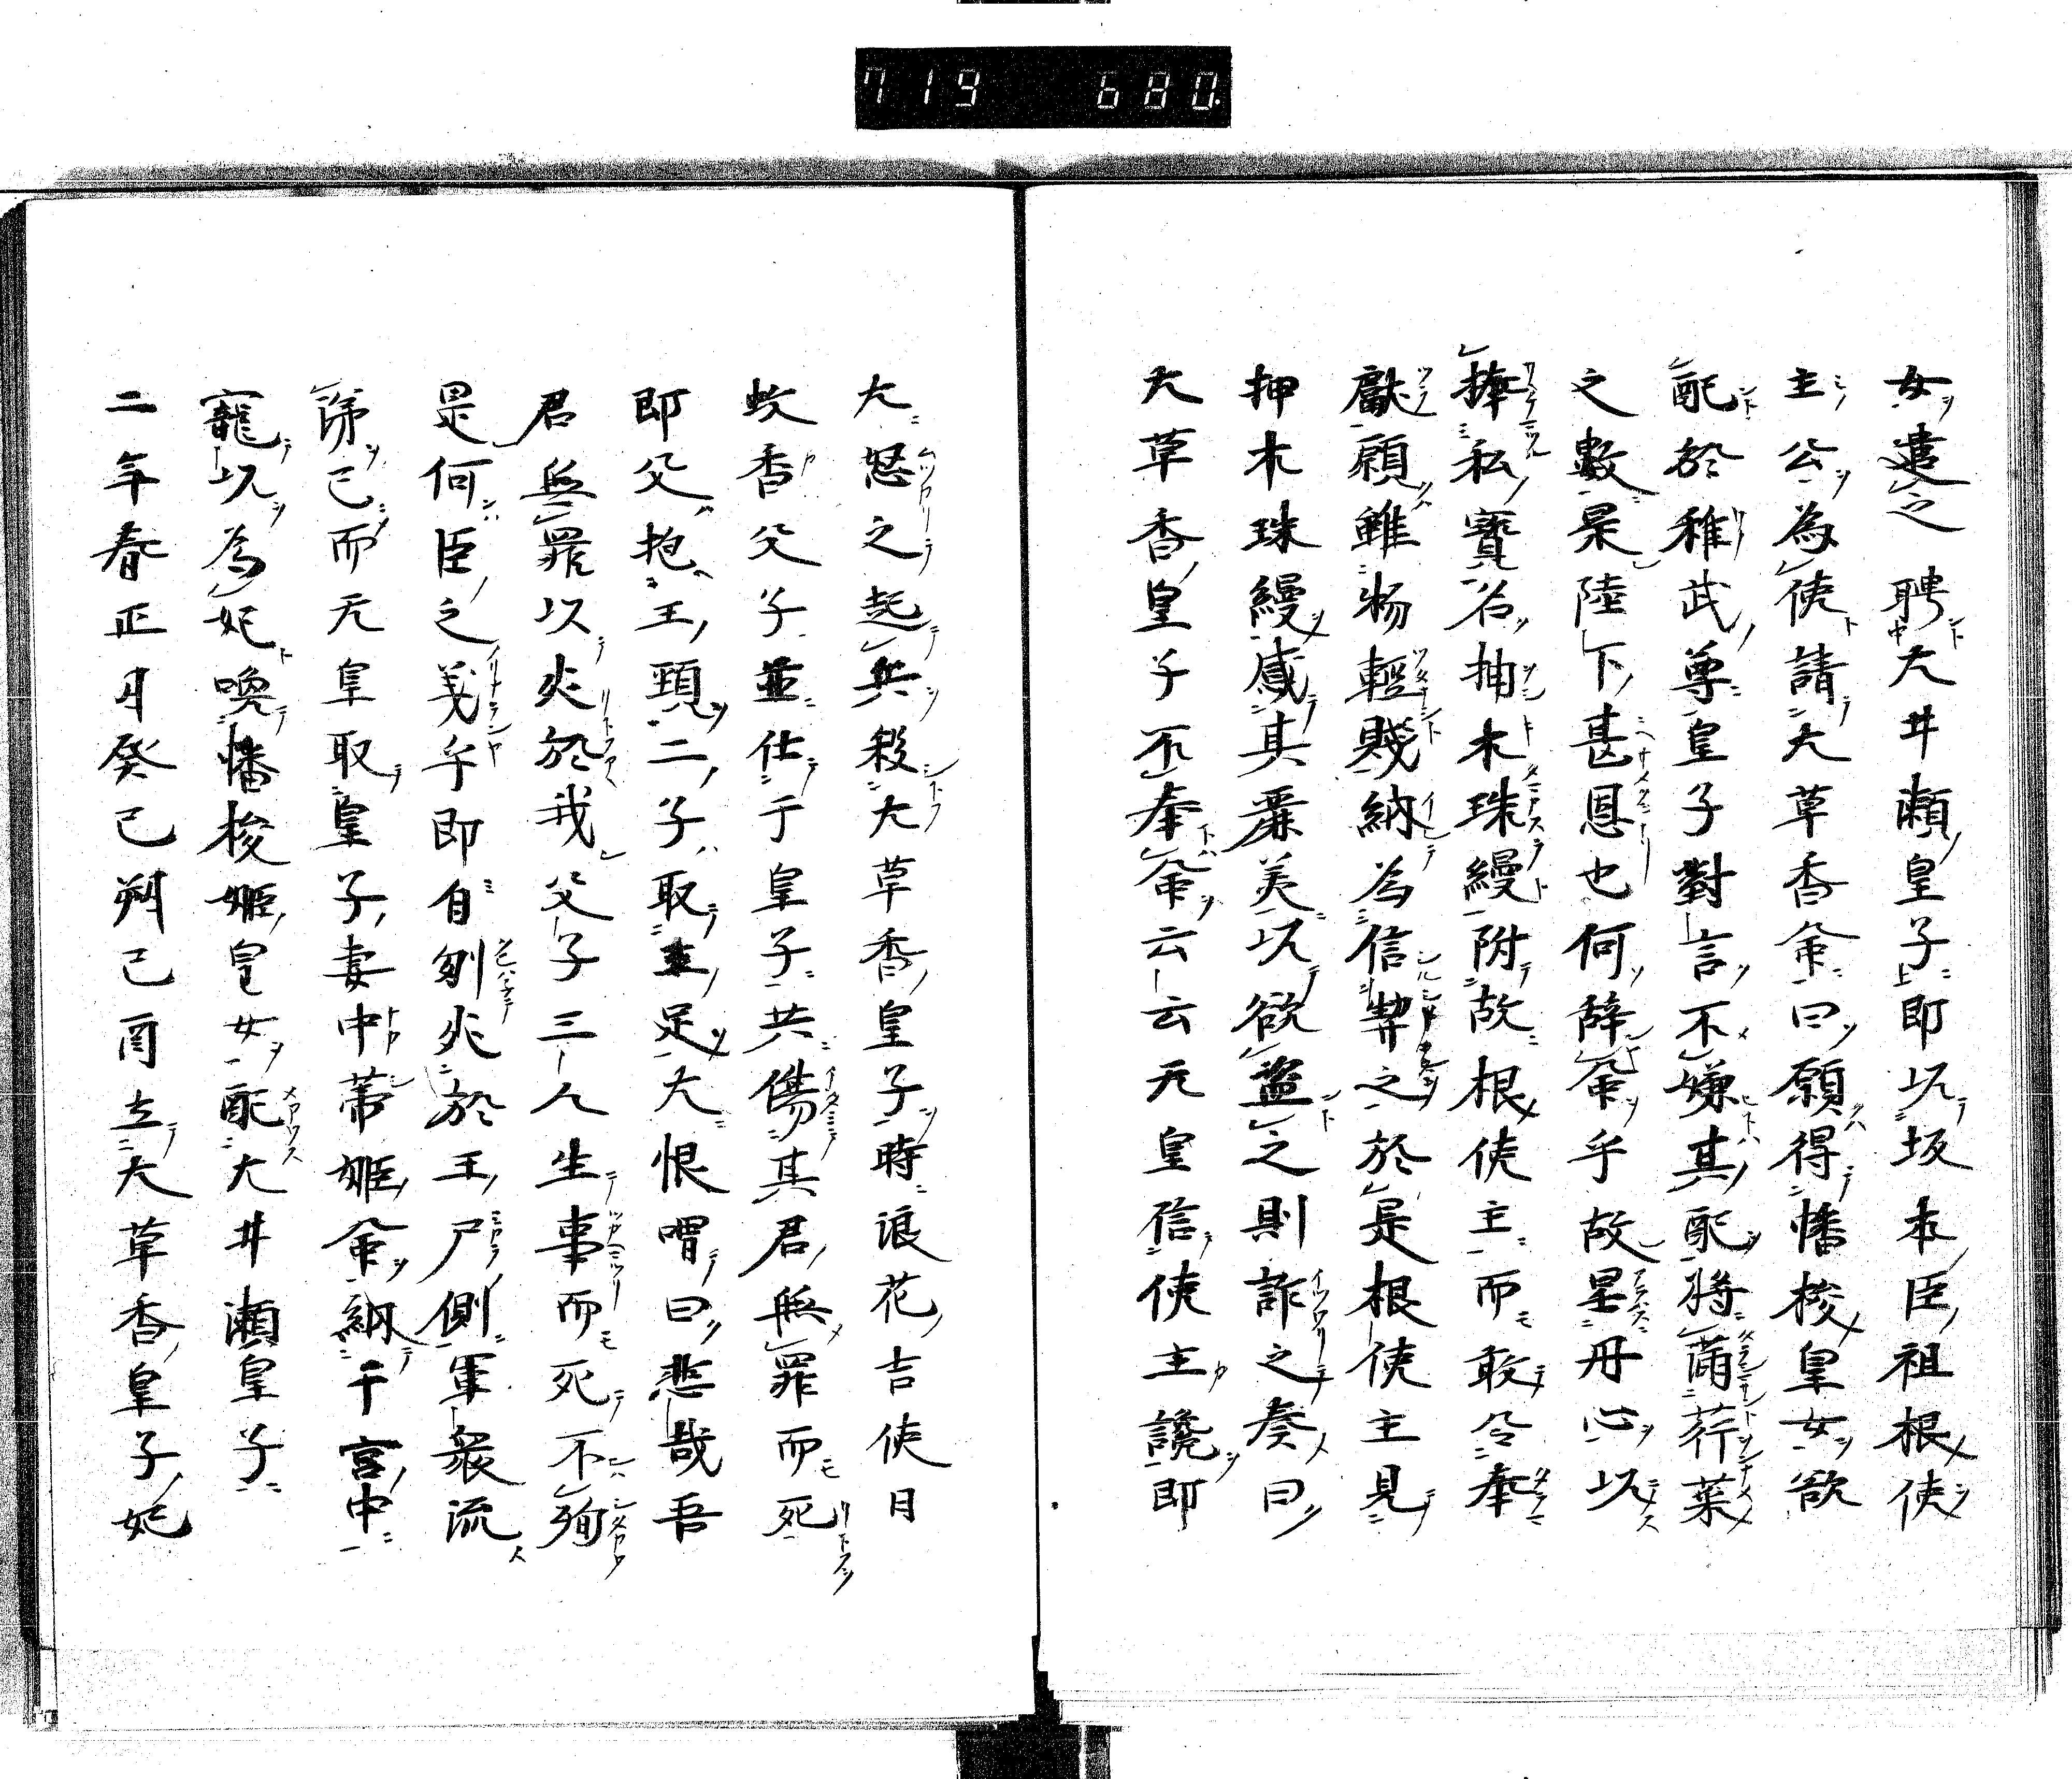 719 680
女遣之聘大井瀬皇子即以坂本臣祖根使
主公為使請大草香命曰願得幡梭皇女欲
配於稚武尊皇子對言不嫌其配將滿荇菜
之數是陸下甚恩也何辞命乎故呈丹心以
捧私寶名押木珠縵附故根使主而敢令奉
獻願雖物輕賤納為信契之於是根使主見
押木珠縵感其麗美以欲盜之則詐之奏曰
大草香皇子不奉命云云天皇信使主讒即
大怒之起兵殺大草香皇子時浪花吉使日
蚊香父子並仕于皇子共傷其君無罪而死
即父抱王頸二子取王足大恨喟曰悲哉吾
君無罪以死於我父子三人生事而死不殉
是何臣之義乎即自刎死於王尸側軍衆流
涕已而天皇取皇子妻中蒂姫命納于宮中
寵以為妃喚幡梭姫皇女配大井瀬皇子
二年春正月癸巳朔己酉立大草香皇子妃